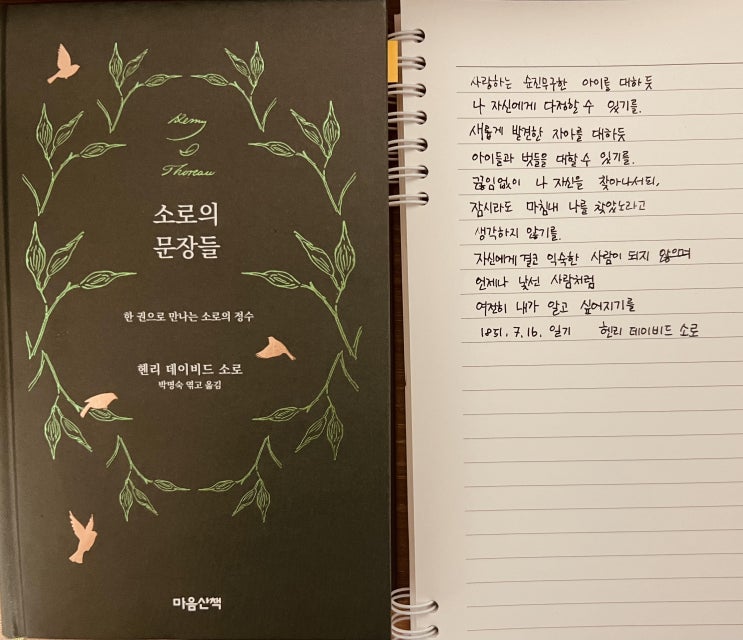 Henry D Thoreau
소로의
문장들
한 권으로 만나는 소로의 정수
헨리 데이비드 소로
박명숙 엮고 옮김
마음산책
사랑하는 순진무구한 아이를 대하듯
나 자신에게 다정할 수 있기를.
새롭게 발견한 자아를 대하듯
아이들과 벗들을 대할 수 있기를.
끊임없이 나 자신을 찾아나서되,
잠시라도 마침내 나를 찾았노라고
생각하지 않기를.
자신에게 결코 익숙한 사람이 되지 않으며
언제나 낯선 사람처럼
여전히 내가 알고 싶어지기를
1851. 7. 16. 일기 헨리 데이비드 소로